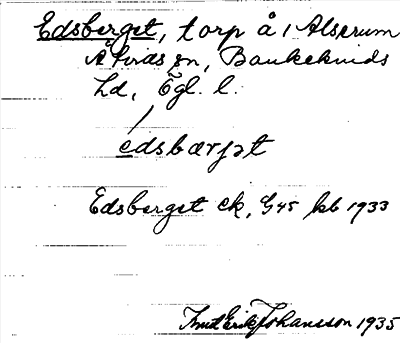 Edsberget, torp å / Alserum
Åtvids sn, Bankekinds
hd, Ögl. l.
edsbærjət
Edsberget ek, G45 kb 1933
Knut Erik Johansson 1935